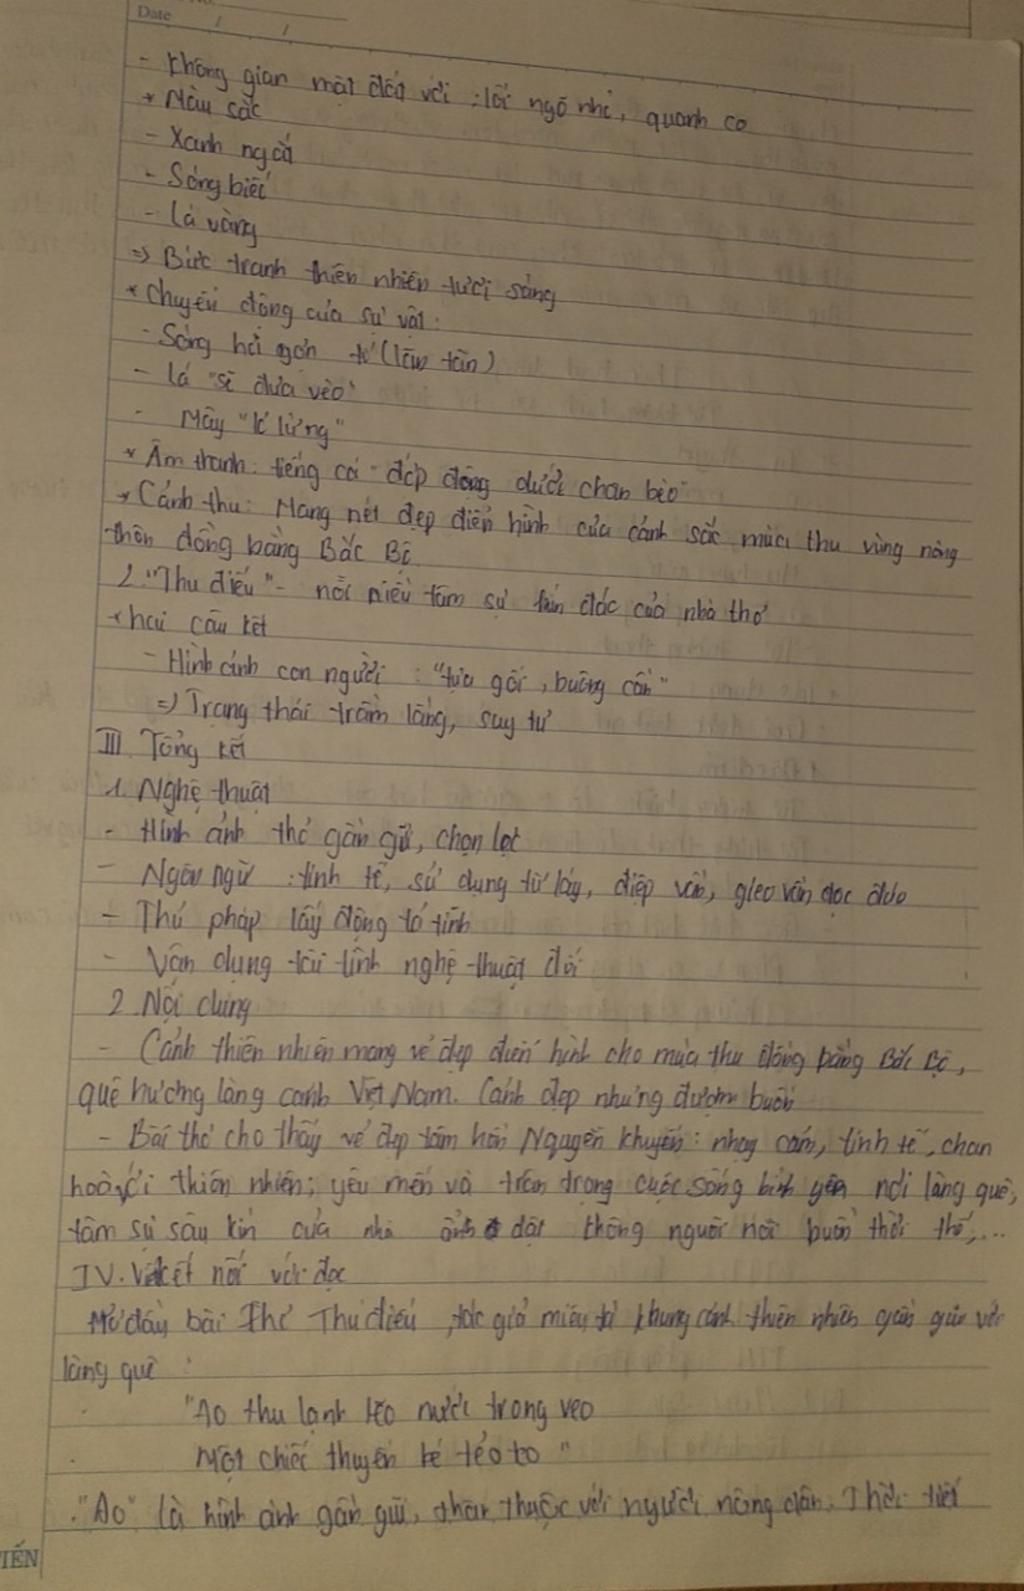 Date / /
- Không gian mặt đất với : lối ngõ nhỏ, quanh co
* Màu sắc
- Xanh ngắt
- Sóng biếc
- Lá vàng
=> Bức tranh thiên nhiên tươi sáng
* Chuyển động của sự vật :
- Sóng hơi gợn tí (lăn tăn)
- Lá "sẽ đưa vèo"
- Mây "lơ lửng"
* Âm thanh : tiếng cá "đớp động dưới chân bèo"
* Cảnh thu : Mang nét đẹp điển hình của cảnh sắc mùa thu vùng nông
thôn đồng bằng Bắc Bộ.
2. "Thu điếu" - nỗi niềm tâm sự kín đáo của nhà thơ
* hai câu kết
- Hình ảnh con người : "tựa gối, buông cần"
=> Trạng thái trầm lắng, suy tư
III. Tổng kết
1. Nghệ thuật
- Hình ảnh thơ gần gũi, chọn lọc
- Ngôn ngữ : tinh tế, sử dụng từ láy, điệp vần, gieo vần độc đáo
- Thủ pháp lấy động tả tĩnh
- Vận dụng tài tình nghệ thuật đối
2. Nội dung
- Cảnh thiên nhiên mang vẻ đẹp điển hình cho mùa thu đồng bằng Bắc Bộ,
quê hương làng cảnh Việt Nam. Cảnh đẹp nhưng đượm buồn
- Bài thơ cho thấy vẻ đẹp tâm hồn Nguyễn Khuyến : nhạy cảm, tinh tế, chan
hoà với thiên nhiên; yêu mến và trân trọng cuộc sống bình yên nơi làng quê,
tâm sự sâu kín của nhà dật không nguôi nỗi buồn thời thế,...
IV. Viết kết nối với đọc
Mở đầu bài Thơ Thu điếu, tác giả miêu tả khung cảnh thiên nhiên gần gũi với
làng quê :
"Ao thu lạnh lẽo nước trong veo
Một chiếc thuyền bé tẻo teo"
"Ao" là hình ảnh gần gũi, thân thuộc với người nông dân. Thời tiết
TIẾN